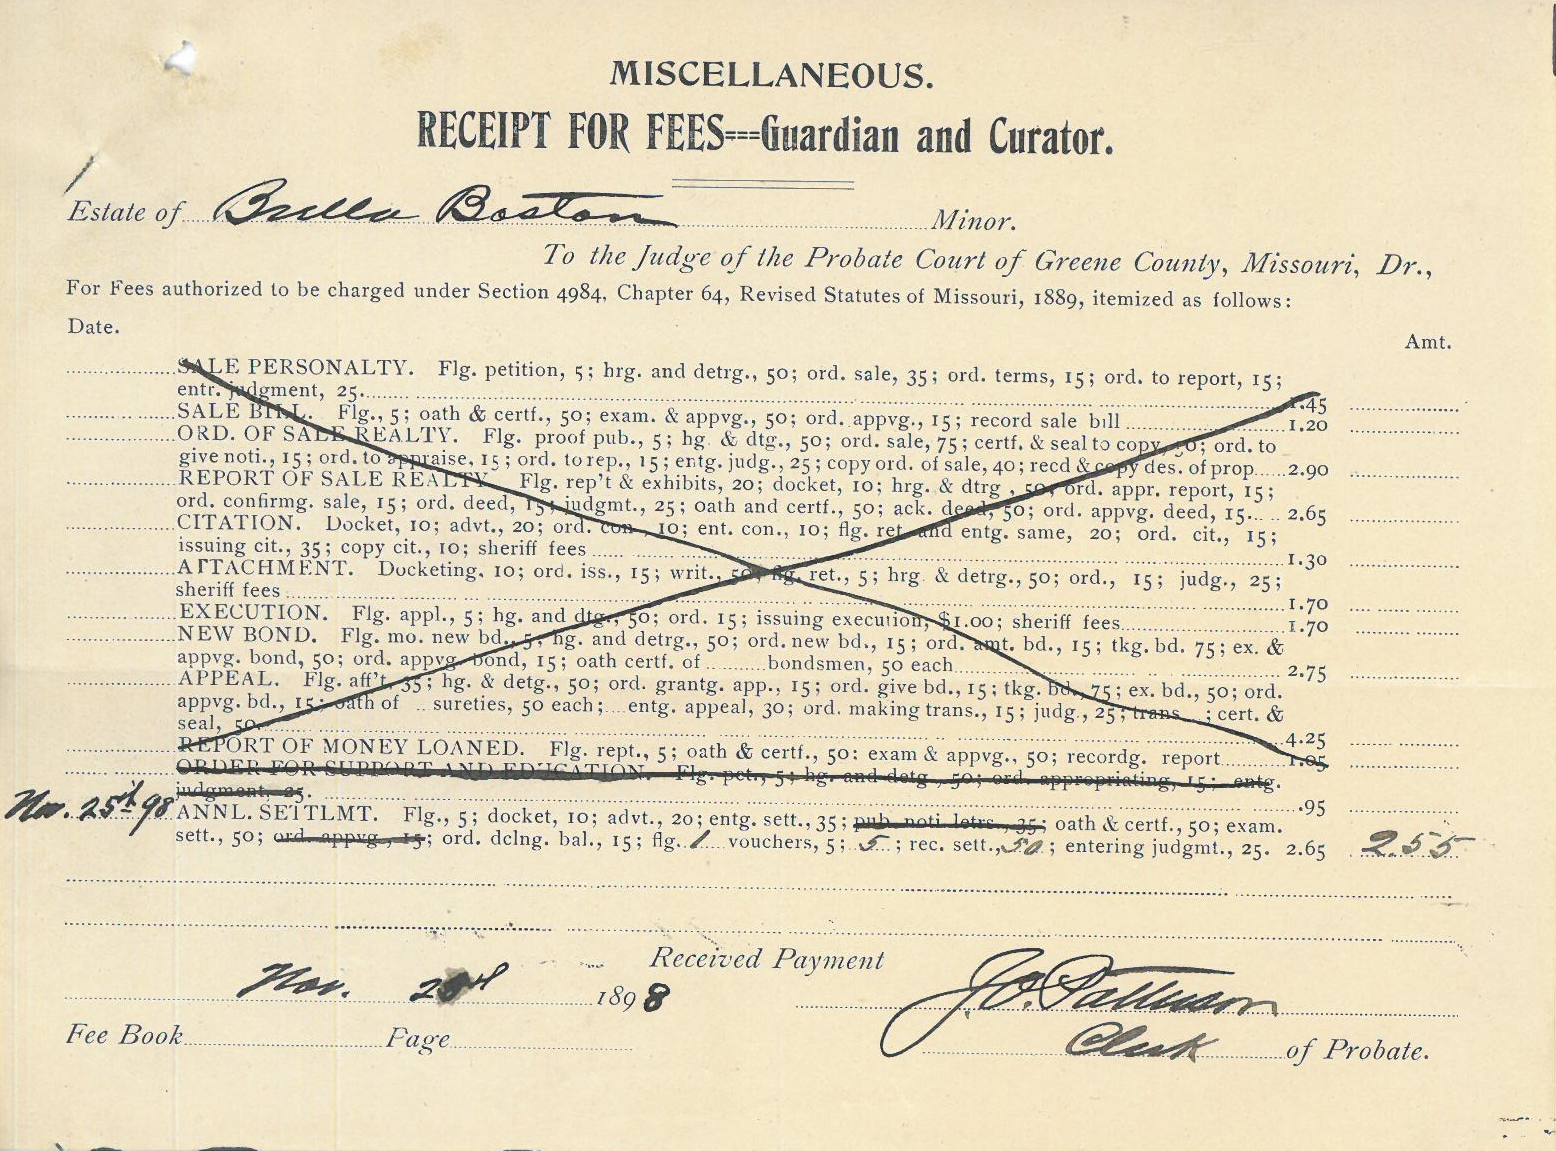 MISCELLANEOUS.
RECEIPT FOR FEES===Guardian and Curator.
Estate of Bulla Boston Minor.
To the Judge of the Probate Court of Greene County, Missouri, Dr.,
For Fees authorized to be charged under Section 4984, Chapter 64, Revised Statutes of Missouri, 1889, itemized as follows:
Date. Amt.
SALE PERSONALTY. Flg. petition, 5; hrg. and detrg., 50; ord. sale, 35; ord. terms, 15; ord. to report, 15;
entr. judgment, 25. 1.45
SALE BILL. Flg., 5; oath & certf., 50; exam. & appvg., 50; ord. appvg., 15; record sale bill 1.20
ORD. OF SALE REALTY. Flg. proof pub., 5; hg. & dtg., 50; ord. sale, 75; certf. & seal to copy, 50; ord. to
give noti., 15; ord. to appraise, 15; ord. to rep., 15; entg. judg., 25; copy ord. of sale, 40; recd & copy des. of prop. 2.90
REPORT OF SALE REALTY. Flg. rep't & exhibits, 20; docket, 10; hrg. & dtrg., 50; ord. appr. report, 15;
ord. confirmg. sale, 15; ord. deed, 15; judgmt., 25; oath and certf., 50; ack. deed, 50; ord. appvg. deed, 15. 2.65
CITATION. Docket, 10; advt., 20; ord. con., 10; ent. con., 10; flg. ret. and entg. same, 20; ord. cit., 15;
issuing cit., 35; copy cit., 10; sheriff fees 1.30
ATTACHMENT. Docketing, 10; ord. iss., 15; writ., 50; flg. ret., 5; hrg. & detrg., 50; ord., 15; judg., 25;
sheriff fees 1.70
EXECUTION. Flg. appl., 5; hg. and dtg., 50; ord. 15; issuing execution, $1.00; sheriff fees 1.70
NEW BOND. Flg. mo. new bd., 5; hg. and detrg., 50; ord. new bd., 15; ord. amt. bd., 15; tkg. bd. 75; ex. &
appvg. bond, 50; ord. appvg. bond, 15; oath certf. of bondsmen, 50 each 2.75
APPEAL. Flg. aff't, 35; hg. & detg., 50; ord. grantg. app., 15; ord. give bd., 15; tkg. bd., 75; ex. bd., 50; ord.
appvg. bd., 15; oath of sureties, 50 each; entg. appeal, 30; ord. making trans., 15; judg., 25; trans. ; cert. &
seal, 50 4.25
REPORT OF MONEY LOANED. Flg. rept., 5; oath & certf., 50: exam & appvg., 50; recordg. report 1.05
ORDER FOR SUPPORT AND EDUCATION. Flg. pet., 5; hg. and detg., 50; ord. appropriating, 15; entg.
judgment, 25. .95
Nov. 25th 98 ANNL. SETTLMT. Flg., 5; docket, 10; advt., 20; entg. sett., 35; pub. noti. letrs., 35; oath & certf., 50; exam.
sett., 50; ord. appvg., 15; ord. dclng. bal., 15; flg. 1 vouchers, 5; 5; rec. sett., 50; entering judgmt., 25. 2.65 2.55
Received Payment
Nov. 1898 J.O. Patterson
Fee Book Page Clerk of Probate.